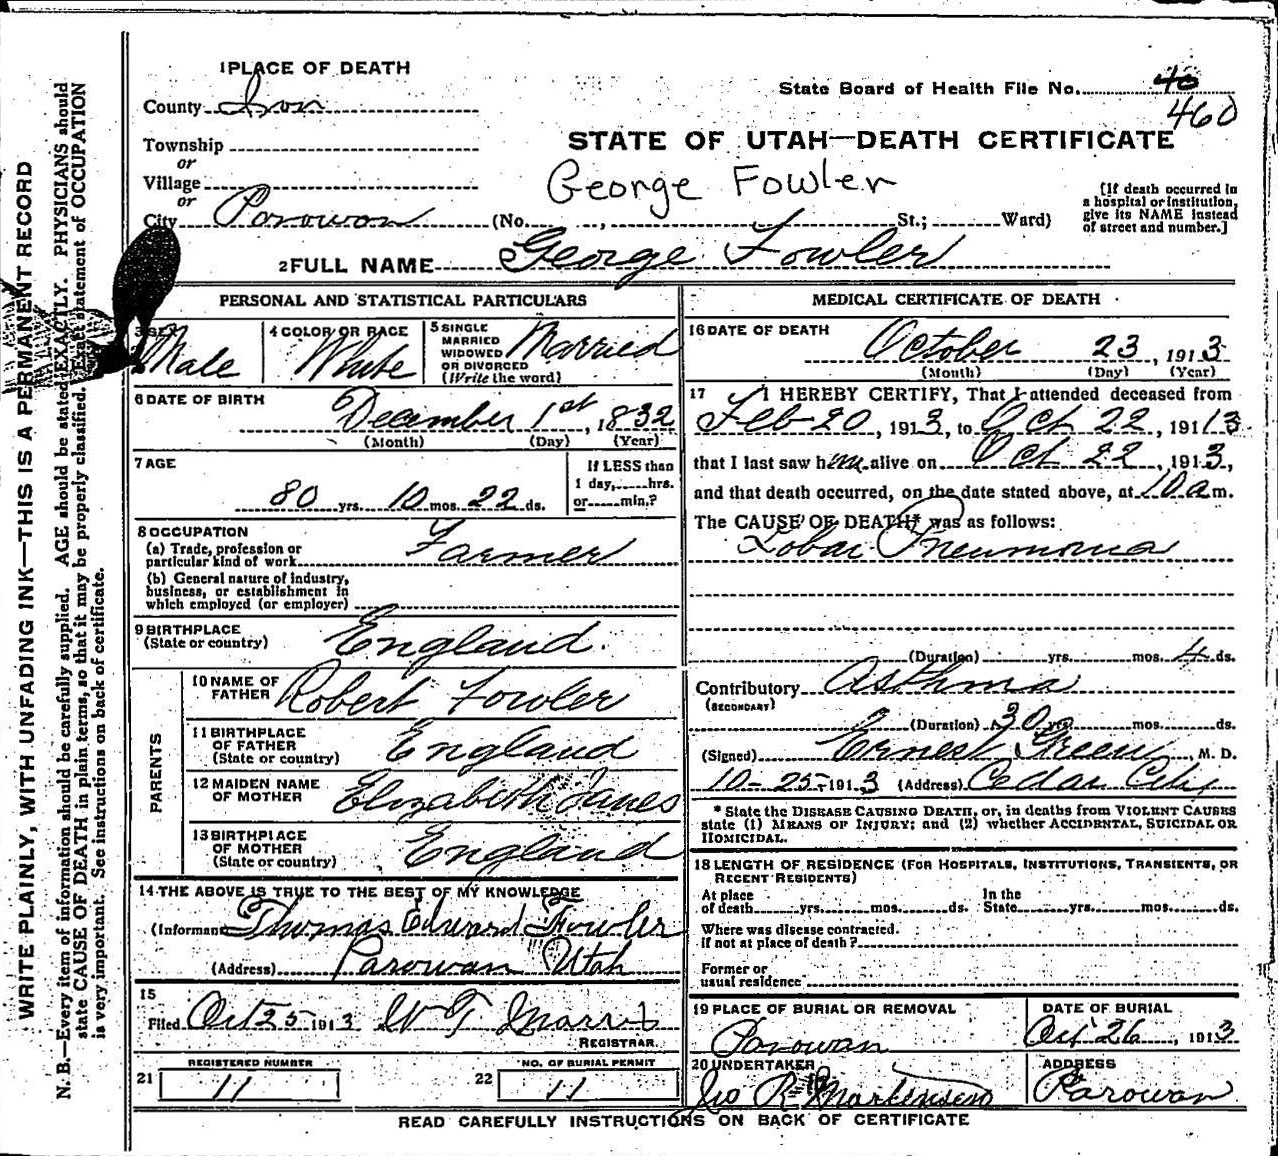 1 PLACE OF DEATH
County Iron
Township
or
Village
or
City Parowan (No. , St.; Ward)
State Board of Health File No. 40
460
STATE OF UTAH—DEATH CERTIFICATE
George Fowler
[If death occurred in
a hospital or institution,
give its NAME instead
of street and number.]
2 FULL NAME George Fowler
PERSONAL AND STATISTICAL PARTICULARS
3 SEX
Male
4 COLOR OR RACE
White
5 SINGLE
MARRIED
WIDOWED
OR DIVORCED
(Write the word)
Married
6 DATE OF BIRTH
December 1st, 1832
(Month) (Day) (Year)
7 AGE
80 yrs. 10 mos. 22 ds.
If LESS than
1 day, hrs.
or min.?
8 OCCUPATION
(a) Trade, profession or
particular kind of work Farmer
(b) General nature of industry,
business, or establishment in
which employed (or employer)
9 BIRTHPLACE
(State or country) England.
PARENTS
10 NAME OF
FATHER Robert Fowler
11 BIRTHPLACE
OF FATHER
(State or country) England
12 MAIDEN NAME
OF MOTHER Elizabeth Janes
13 BIRTHPLACE
OF MOTHER
(State or country) England
14 THE ABOVE IS TRUE TO THE BEST OF MY KNOWLEDGE
(Informant Thomas Edward Fowler
(Address) Parowan Utah
15
Filed Oct 25 1913 W T Morris
REGISTRAR.
REGISTERED NUMBER
21 11
NO. OF BURIAL PERMIT
22 11
MEDICAL CERTIFICATE OF DEATH
16 DATE OF DEATH
October 23, 1913
(Month) (Day) (Year)
17 I HEREBY CERTIFY, That I attended deceased from
Feb 20, 1913, to Oct 22, 19113
that I last saw him alive on Oct 22, 1913,
and that death occurred, on the date stated above, at 10 a m.
The CAUSE OF DEATH* was as follows:
Lobar Pneumonia
(Duration) yrs. mos. 4 ds.
Contributory Asthma
(SECONDARY)
(Duration) 30 yrs. mos. ds.
(Signed) Ernest Green M. D.
10-25-1913 (Address) Cedar City
* State the DISEASE CAUSING DEATH, or, in deaths from VIOLENT CAUSES
state (1) MEANS OF INJURY; and (2) whether ACCIDENTAL, SUICIDAL OR
HOMICIDAL.
18 LENGTH OF RESIDENCE (FOR HOSPITALS, INSTITUTIONS, TRANSIENTS, OR
RECENT RESIDENTS)
At place
of death yrs. mos. ds.
In the
State yrs. mos. ds.
Where was disease contracted.
if not at place of death?
Former or
usual residence
19 PLACE OF BURIAL OR REMOVAL
Parowan
DATE OF BURIAL
Oct 26, 1913
20 UNDERTAKER
R Mortensen
ADDRESS
Parowan
READ CAREFULLY INSTRUCTIONS ON BACK OF CERTIFICATE
WRITE PLAINLY, WITH UNFADING INK—THIS IS A PERMANENT RECORD
N. B.—Every item of information should be carefully supplied. AGE should be stated EXACTLY. PHYSICIANS should
state CAUSE OF DEATH in plain terms, so that it may be properly classified. Exact statement of OCCUPATION
is very important. See instructions on back of certificate.